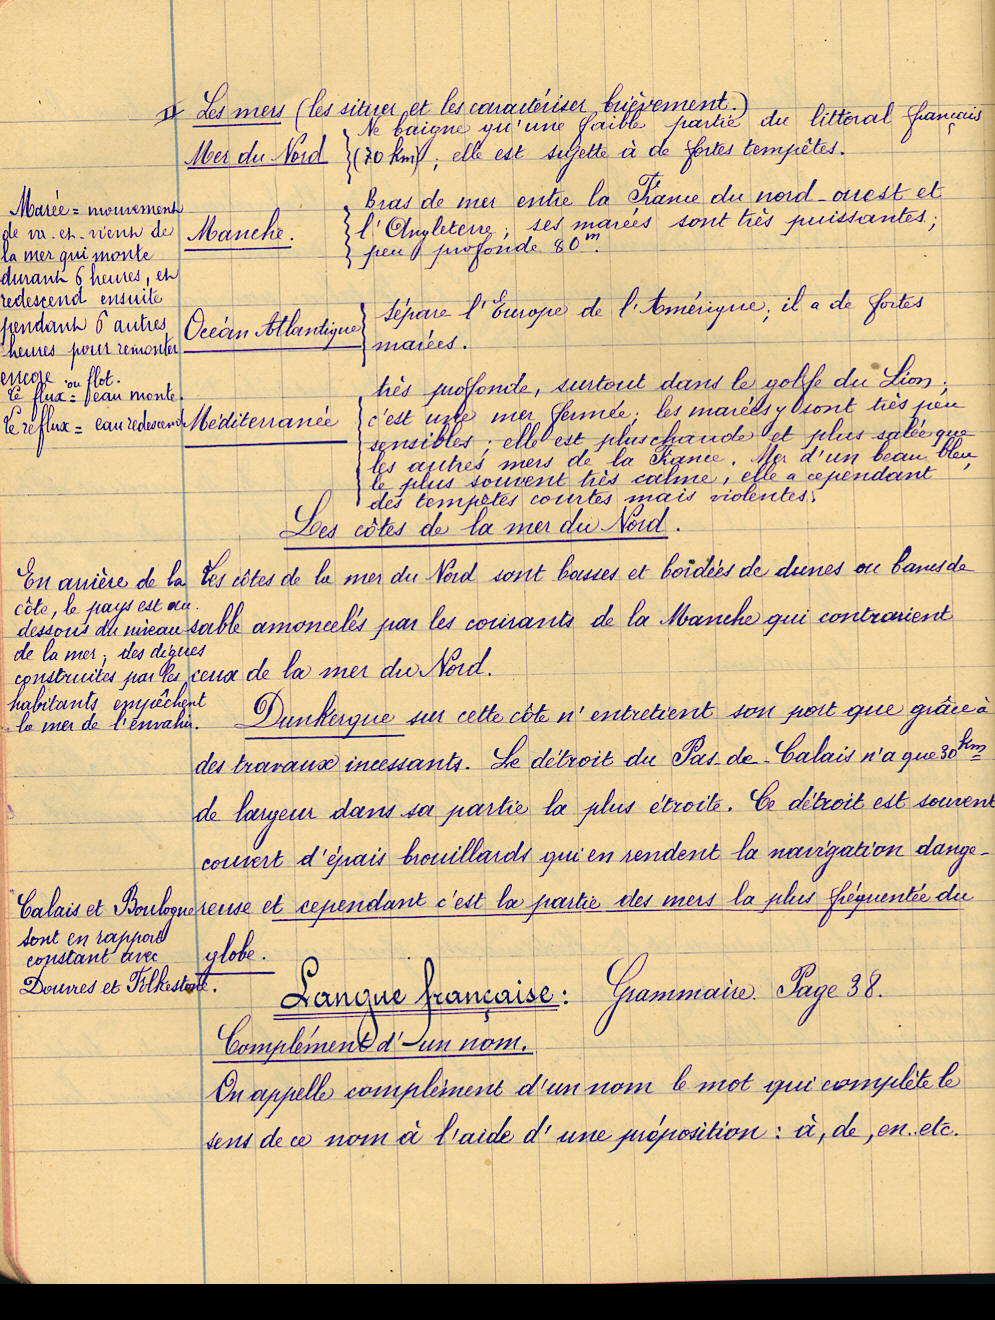 II Les mers (les situer et les caractériser brièvement.)
Mer du Nord
Ne baigne qu'une faible partie du littoral français
(70 km) ; elle est sujette à de fortes tempêtes.
Manche.
Bras de mer entre la France du nord-ouest et
l'Angleterre ; ses marées sont très puissantes ;
peu profonde 80m.
Océan Atlantique
sépare l'Europe de l'Amérique ; il a de fortes
marées.
Méditerranée
très profonde, surtout dans le golfe du Lion ;
c'est une mer fermée ; les marées y sont très peu
sensibles ; elle est plus chaude et plus salée que
les autres mers de la France. Mer d'un beau bleu,
le plus souvent très calme, elle a cependant
des tempêtes courtes mais violentes.
Marée = mouvement
de va-et-vient de
la mer qui monte
durant 6 heures, et
redescend ensuite
pendant 6 autres
heures pour remonter
encore
ou flot.
Le flux = l'eau monte.
Le reflux = eau redescend
Les côtes de la mer du Nord.
Les côtes de la mer du Nord sont basses et bordées de dunes ou bancs de
sable amoncelés par les courants de la Manche qui contrarient
ceux de la mer du Nord.
En arrière de la
côte, le pays est au
dessous du niveau
de la mer ; des digues
construites par les
habitants empêchent
la mer de l'envahir.
Dunkerque sur cette côte n'entretient son port que grâce à
des travaux incessants. Le détroit du Pas-de-Calais n'a que 30 km
de largeur dans sa partie la plus étroite. Ce détroit est souvent
couvert d'épais brouillards qui en rendent la navigation dange-
reuse et cependant c'est la partie des mers la plus fréquentée du
globe.
Calais et Boulogne
sont en rapport
constant avec
Douvres et Folkestone.
Langue française : Grammaire. Page 38.
Complément d'un nom.
On appelle complément d'un nom le mot qui complète le
sens de ce nom à l'aide d'une préposition : à, de, en..etc.